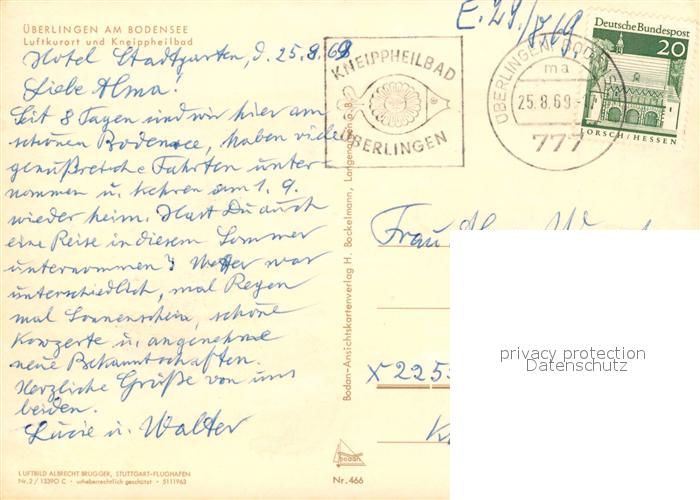 ÜBERLINGEN AM BODENSEE
Luftkurort und Kneippheilbad
Hotel Stadtgarten, d. 25.8.69
Liebe Alma!
Seit 8 Tagen sind wir hier am
schönen Bodensee, haben viele
genußreiche Fahrten unter-
nommen u. kehren am 1. 9.
wieder heim. Hast Du auch
eine Reise in diesem Sommer
unternommen? Wetter war
unterschiedlich, mal Regen
mal Sonnenschein, schöne
Konzerte u. angenehme
neue Bekanntschaften.
Herzliche Grüße von uns
beiden.
Lucie u. Walter
LUFTBILD ALBRECHT BRUGGER, STUTTGART-FLUGHAFEN
Nr. 2 / 13390 C • urheberrechtlich geschützt • 5111963
Bodan-Ansichtskartenverlag H. Bockelmann, Langenargen a. B.
bodan
Nr. 466
KNEIPPHEILBAD
ÜBERLINGEN
E. 29./8 69.
ÜBERLINGEN, BODENSEE
ma
25.8.69.-
777
Deutsche Bundespost
20
LORSCH/HESSEN
Frau
X 225
privacy protection
Datenschutz